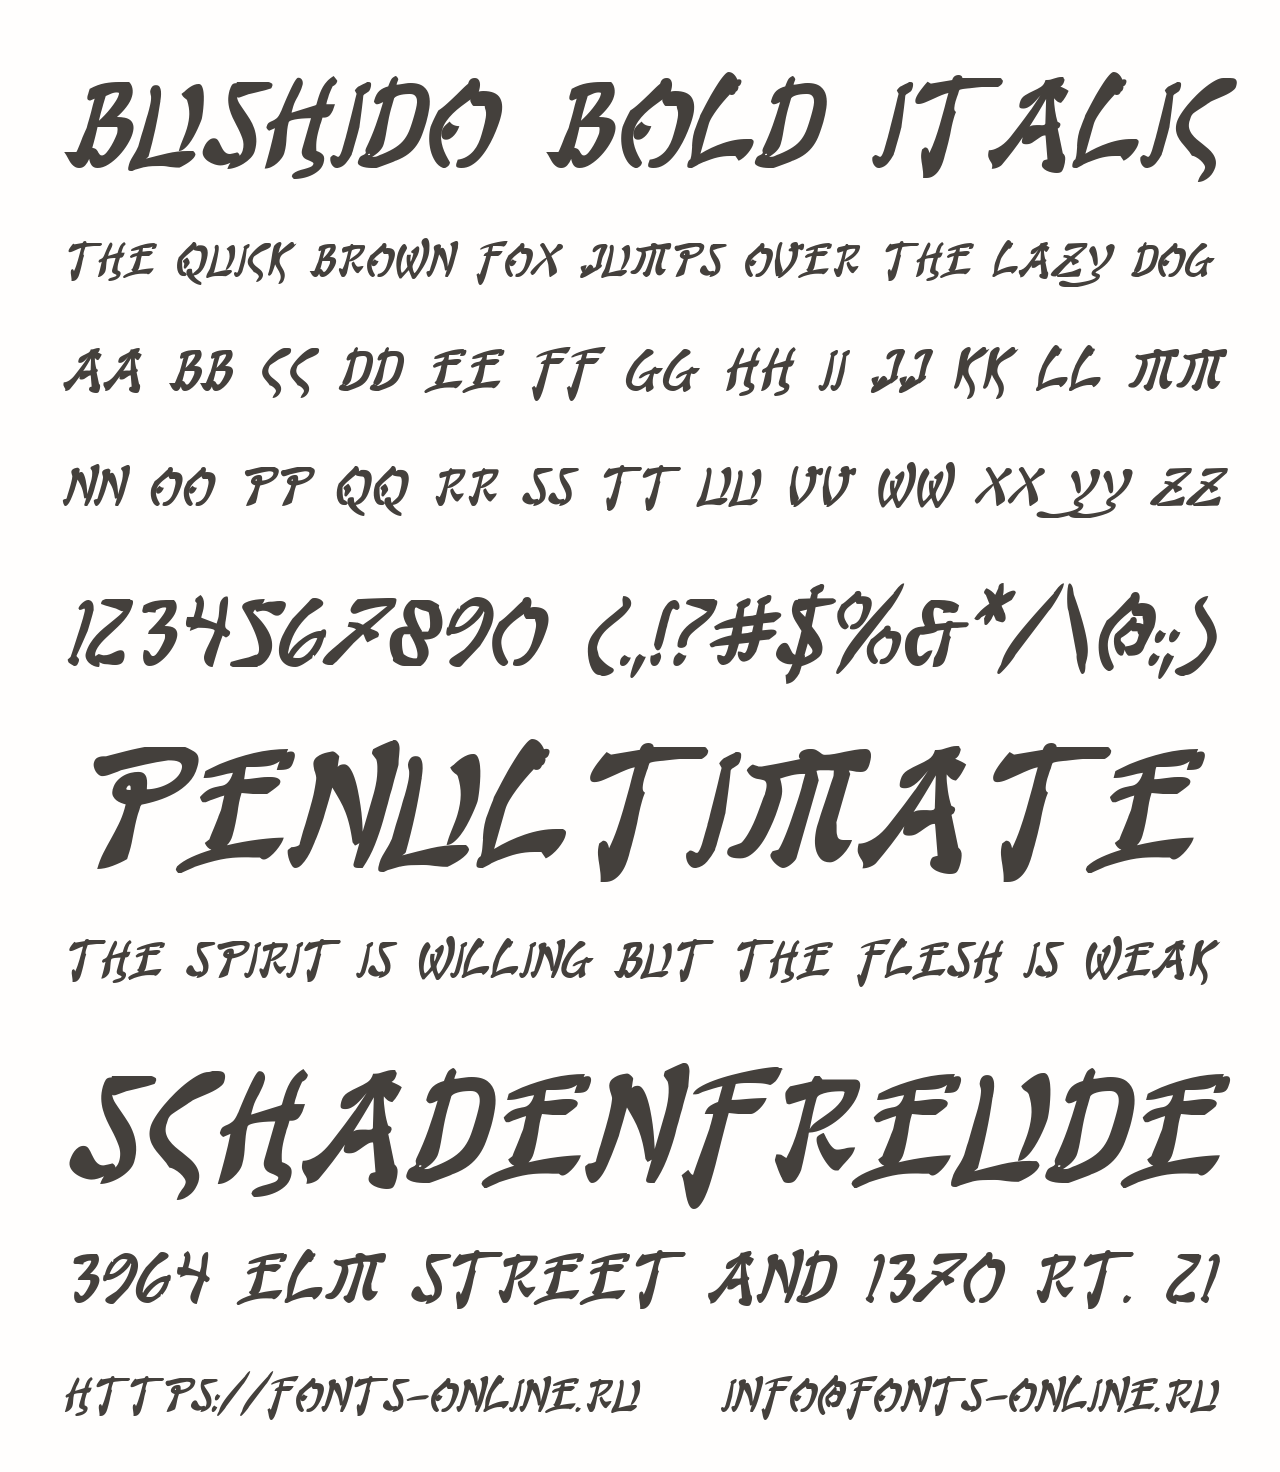 BUSHIDO BOLD ITALIC
THE QUICK BROWN FOX JUMPS OVER THE LAZY DOG
AA BB CC DD EE FF GG HH II JJ KK LL MM
NN OO PP QQ RR SS TT UU VV WW XX YY ZZ
1234567890 (.,!?#$%&*/\@:;)
PENULTIMATE
THE SPIRIT IS WILLING BUT THE FLESH IS WEAK
SCHADENFREUDE
3964 ELM STREET AND 1370 RT. 21
HTTPS://FONTS-ONLINE.RU INFO@FONTS-ONLINE.RU